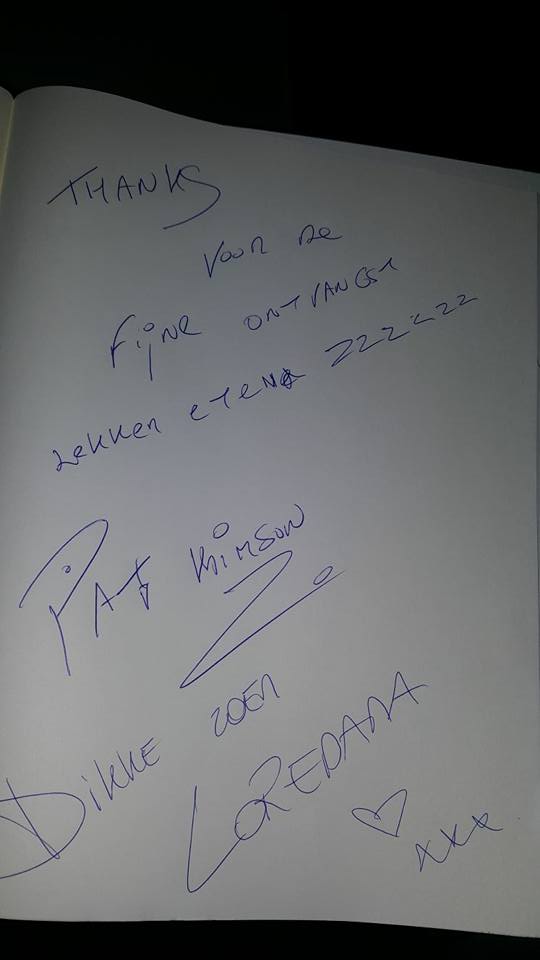 THANKS
VOOR DE
FIJNE ONTVANGST
LEKKER ETEN ZZZZZZ
PAT KRIMSON
DIKKE ZOEN
LOREDANA
XXX